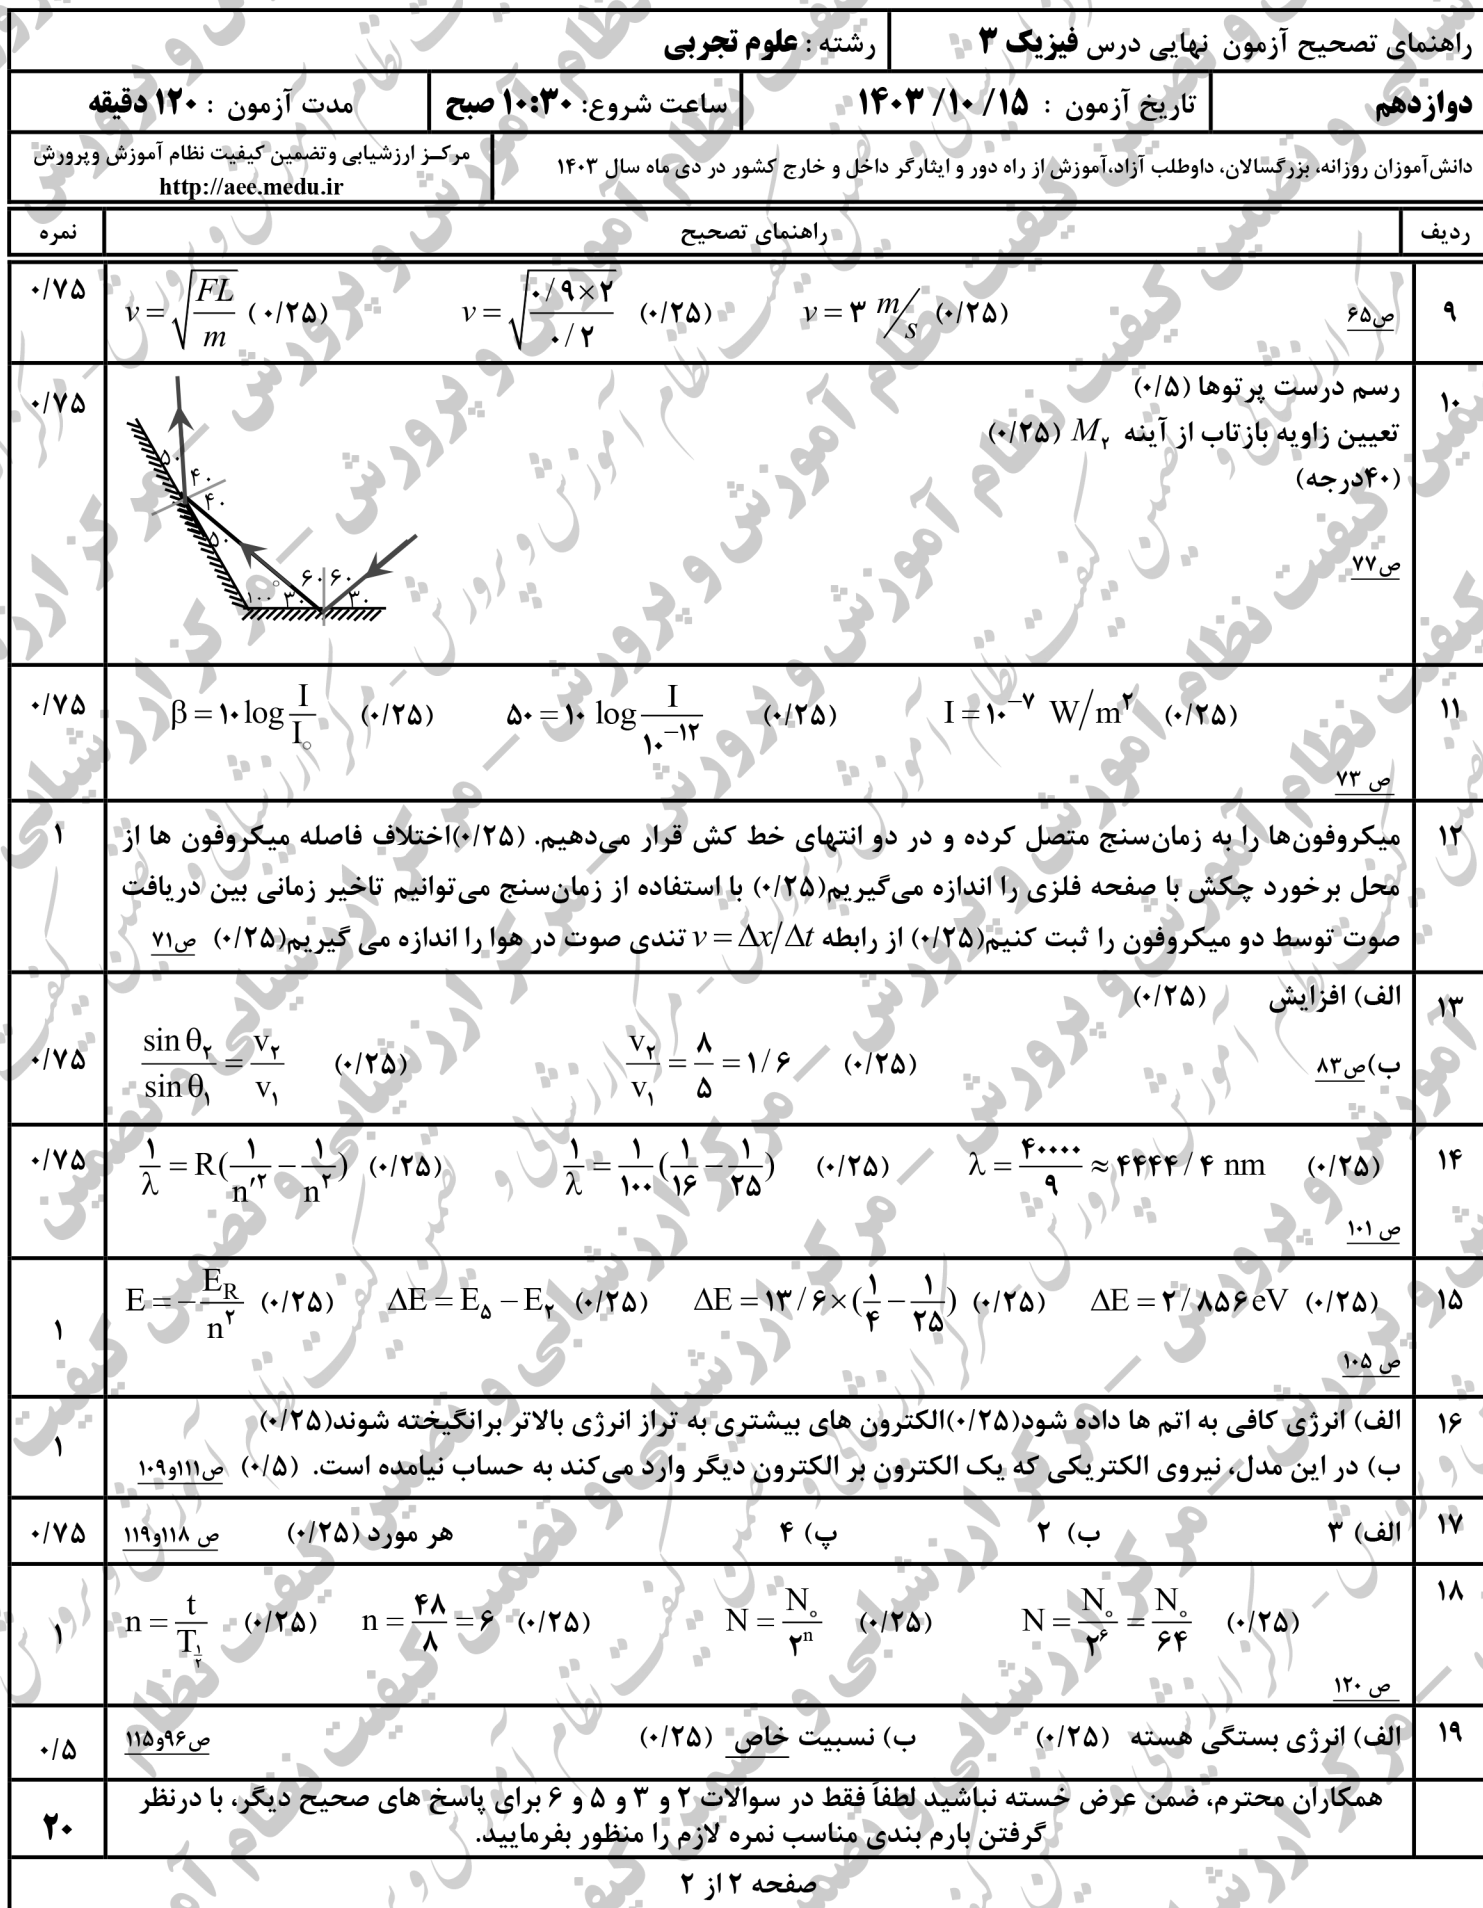 راهنمای تصحیح آزمون نهایی درس فیزیک ۳ رشته : علوم تجربی
دوازدهم تاریخ آزمون : ۱۵ /۱۰ /۱۴۰۳ ساعت شروع: ۱۰:۳۰ صبح مدت آزمون : ۱۲۰ دقیقه
دانش‌آموزان روزانه، بزرگسالان، داوطلب آزاد،آموزش از راه دور و ایثارگر داخل و خارج کشور در دی ماه سال ۱۴۰۳ مرکـز ارزشیابی وتضمین کیفیت نظام آموزش وپرورش
http://aee.medu.ir
ردیف راهنمای تصحیح نمره
۹ v = √(FL/m) (۰/۲۵) v = √(۰/۹×۲ / ۰/۲) (۰/۲۵) v = ۳ m/s (۰/۲۵) ص۶۵ ۰/۷۵
۱۰ رسم درست پرتوها (۰/۵) ۰/۷۵
تعیین زاویه بازتاب از آینه M۲ (۰/۲۵)
(۴۰درجه)
ص۷۷
۵۰ ۴۰ ۴۰ ۵۰ ۶۰ ۶۰ ۱۰۰° ۳۰ ۳۰
۱۱ β = ۱۰ log I/I∘ (۰/۲۵) ۵۰ = ۱۰ log I/۱۰^−۱۲ (۰/۲۵) I = ۱۰^−۷ W/m^۲ (۰/۲۵) ۰/۷۵
ص ۷۳
۱۲ میکروفون‌ها را به زمان‌سنج متصل کرده و در دو انتهای خط کش قرار می‌دهیم. (۰/۲۵)اختلاف فاصله میکروفون ها از ۱
محل برخورد چکش با صفحه فلزی را اندازه می‌گیریم(۰/۲۵) با استفاده از زمان‌سنج می‌توانیم تاخیر زمانی بین دریافت
صوت توسط دو میکروفون را ثبت کنیم(۰/۲۵) از رابطه v = Δx/Δt تندی صوت در هوا را اندازه می گیریم(۰/۲۵) ص۷۱
۱۳ الف) افزایش (۰/۲۵)
ب)ص۸۳ sin θ۲/sin θ۱ = v۲/v۱ (۰/۲۵) v۲/v۱ = ۸/۵ = ۱/۶ (۰/۲۵) ۰/۷۵
۱۴ ۱/λ = R(۱/n′^۲ − ۱/n^۲) (۰/۲۵) ۱/λ = ۱/۱۰۰(۱/۱۶ − ۱/۲۵) (۰/۲۵) λ = ۴۰۰۰۰/۹ ≈ ۴۴۴۴/۴ nm (۰/۲۵) ۰/۷۵
ص ۱۰۱
۱۵ E = −E_R/n^۲ (۰/۲۵) ΔE = E۵ − E۲ (۰/۲۵) ΔE = ۱۳/۶×(۱/۴ − ۱/۲۵) (۰/۲۵) ΔE = ۲/۸۵۶ eV (۰/۲۵) ۱
ص ۱۰۵
۱۶ الف) انرژی کافی به اتم ها داده شود(۰/۲۵)الکترون های بیشتری به تراز انرژی بالاتر برانگیخته شوند(۰/۲۵) ۱
ب) در این مدل، نیروی الکتریکی که یک الکترون بر الکترون دیگر وارد می‌کند به حساب نیامده است. (۰/۵) ص۱۱۱و۱۰۹
۱۷ الف) ۳ ب) ۲ پ) ۴ هر مورد (۰/۲۵) ص ۱۱۸و۱۱۹ ۰/۷۵
۱۸ n = t/T_۱/۲ (۰/۲۵) n = ۴۸/۸ = ۶ (۰/۲۵) N = N∘/۲^n (۰/۲۵) N = N∘/۲^۶ = N∘/۶۴ (۰/۲۵) ۱
ص ۱۲۰
۱۹ الف) انرژی بستگی هسته (۰/۲۵) ب) نسبیت خاص (۰/۲۵) ص۹۶و۱۱۵ ۰/۵
همکاران محترم، ضمن عرض خسته نباشید لطفاً فقط در سوالات ۲ و ۳ و ۵ و ۶ برای پاسخ های صحیح دیگر، با درنظر
گرفتن بارم بندی مناسب نمره لازم را منظور بفرمایید. ۲۰
صفحه ۲ از ۲
مرکز ارزشیابی و تضمین کیفیت نظام آموزش و پرورش